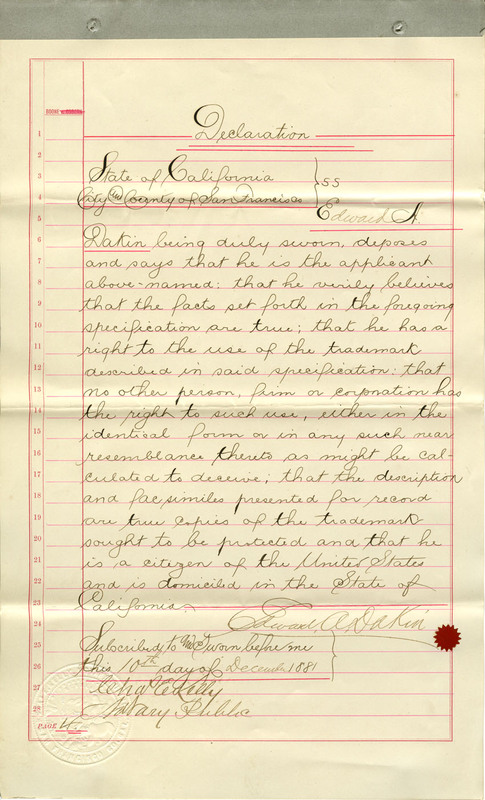 Declaration
State of California
City and County of San Francisco } SS
Edward A.
Dakin being duly sworn, deposes
and says that he is the applicant
above-named: that he verily believes
that the facts set forth in the foregoing
specification are true; that he has a
right to the use of the trademark
described in said specification: that
no other person, firm or corporation has
the right to such use, either in the
identical form or in any such near
resemblance thereto as might be cal-
culated to deceive; that the description
and facsimiles presented for record
are true copies of the trademark
sought to be protected and that he
is a citizen of the United States
and is domiciled in the State of
California.
Edward A. Dakin
Subscribed to and sworn before me
this 10th day of December 1881
Chas E Kelly
Notary Public
PAGE 4.
1
2
3
4
5
6
7
8
9
10
11
12
13
14
15
16
17
18
19
20
21
22
23
24
25
26
27
28